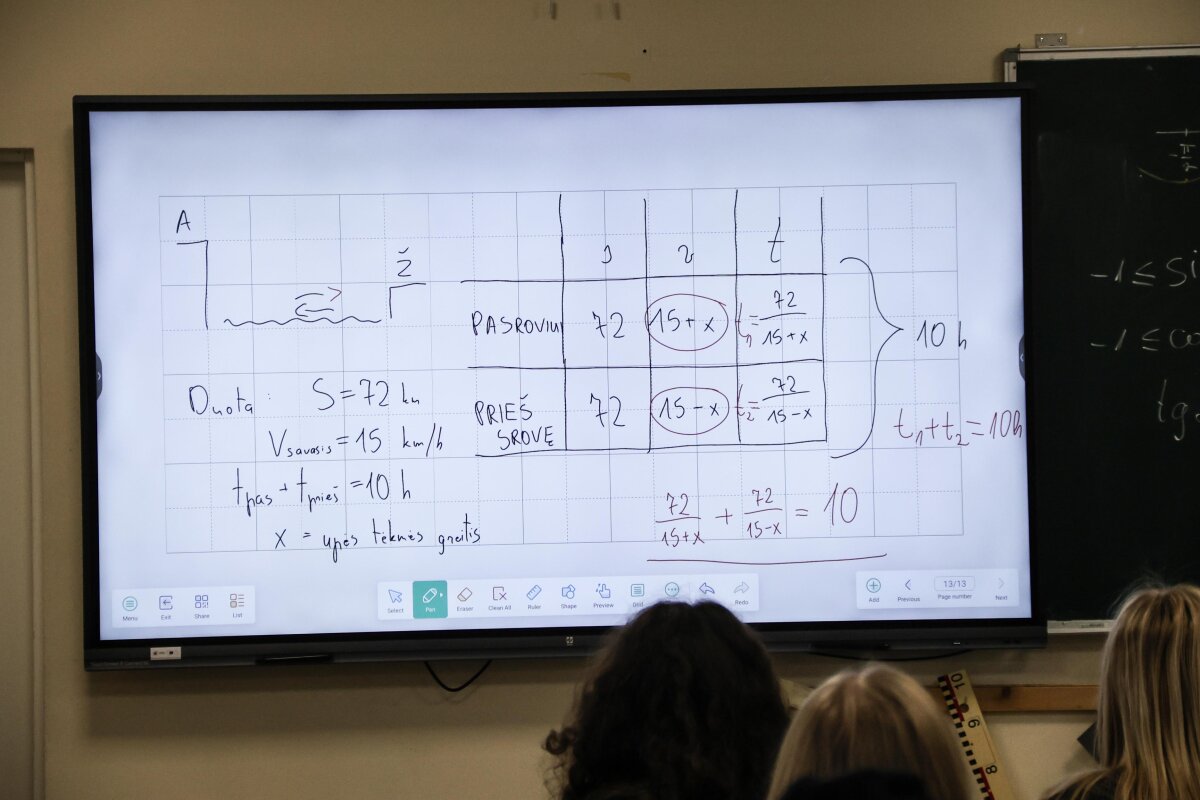 A
Ž
s v t
PASROVIUI 72 15+x t₁= 72/(15+x)
PRIEŠ SROVĘ 72 15-x t₂= 72/(15-x)
10 h
t₁+t₂=10h
Duota: S=72 km
Vsavasis=15 km/h
tpas + tprieš =10 h
x = upės tėkmės greitis
72/(15+x) + 72/(15-x) = 10
Menu Exit Share List
Select Pen Eraser Clean All Ruler Shape Preview Grid Redo
Add Previous 13/13 Page number Next
-1≤si
-1≤co
tg
10 9 8